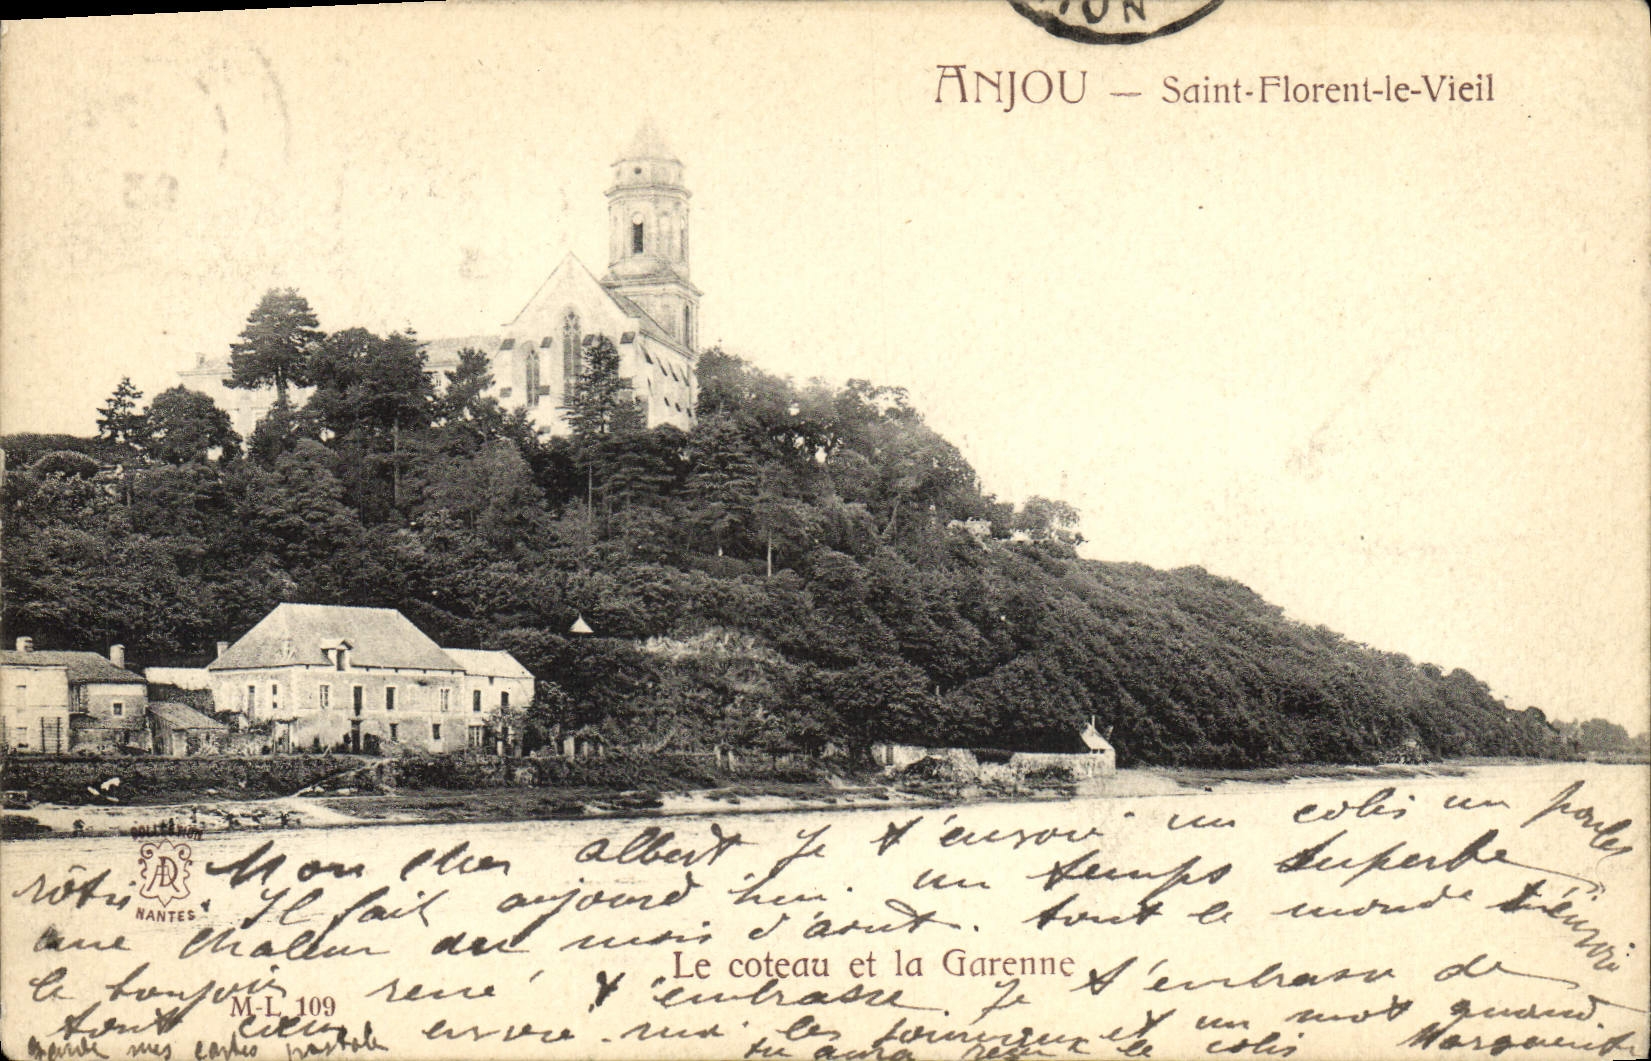 ION
ANJOU — Saint-Florent-le-Vieil
Mon cher albert Je t'envoie un colis un poulet
rôti. Il fait aujourd'hui un temps superbe
une chaleur du mois d'août. tout le monde t'envoie
le bonjour rené t'embrasse. Je t'embrasse de
tout coeur envoie moi les journaux et un mot quand
tu aura reçu le colis Marguerite
garde mes cartes postale
COLLECTION
AD
NANTES
Le coteau et la Garenne
M-L 109